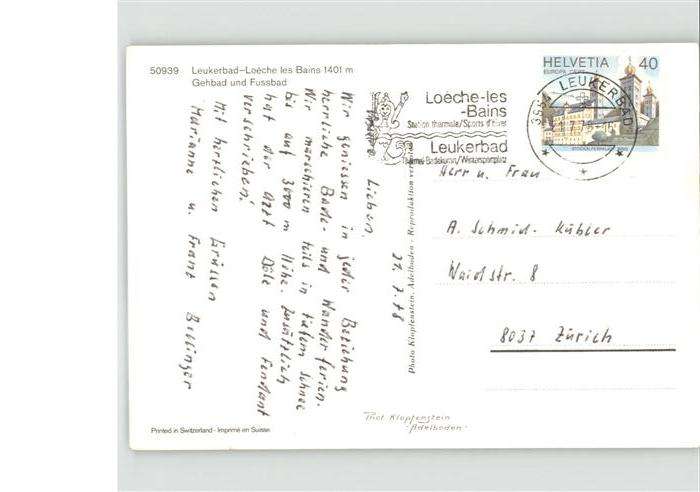 50939 Leukerbad-Loèche les Bains 1401 m
Gehbad und Fussbad
HELVETIA 40
EUROPA CEPT
LEUKERBAD
Loèche-les
-Bains
Station thermale/Sports d'hiver
Leukerbad
Thermal-Badekurort/Wintersportplatz
Herr u. Frau
A. Schmid-Kübler
Waidstr. 8
8037 Zürich
27.7.78
Lieben,
Wir geniessen in jeder Beziehung
herrliche Bade- und Wanderferien.
Wir marschieren teils in tiefem Schnee
bis auf 3000 m Höhe. Zusätzlich
hat der Arzt Dôle und Fendant
verschrieben!
Mit herzlichen Grüssen
Marianne u. Franz Bellinger
Photo Klopfenstein, Adelboden - Reproduktion verboten
Phot Klopfenstein
Adelboden
Printed in Switzerland - Imprimé en Suisse